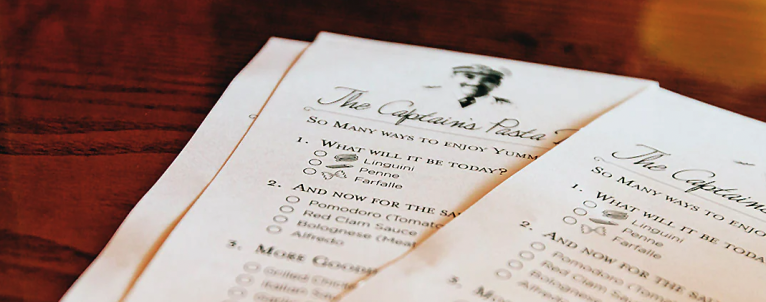 The Captain's Pasta
So Many ways to enjoy Yumm
1. What will it be today?
Linguini
Penne
Farfalle
2. And now for the sa
Pomodoro (Tomato
Red Clam Sauce
Bolognese (Meat
Alfredo
3. More Goodi
Grilled Chick
Italian
The Captain's
So Many ways to enjo
1. What will it be toda
Linguini
Penne
Farfalle
2. And now for
Pomodoro (To
Red Clam Sa
Bolognese
Alfredo
3. Mo